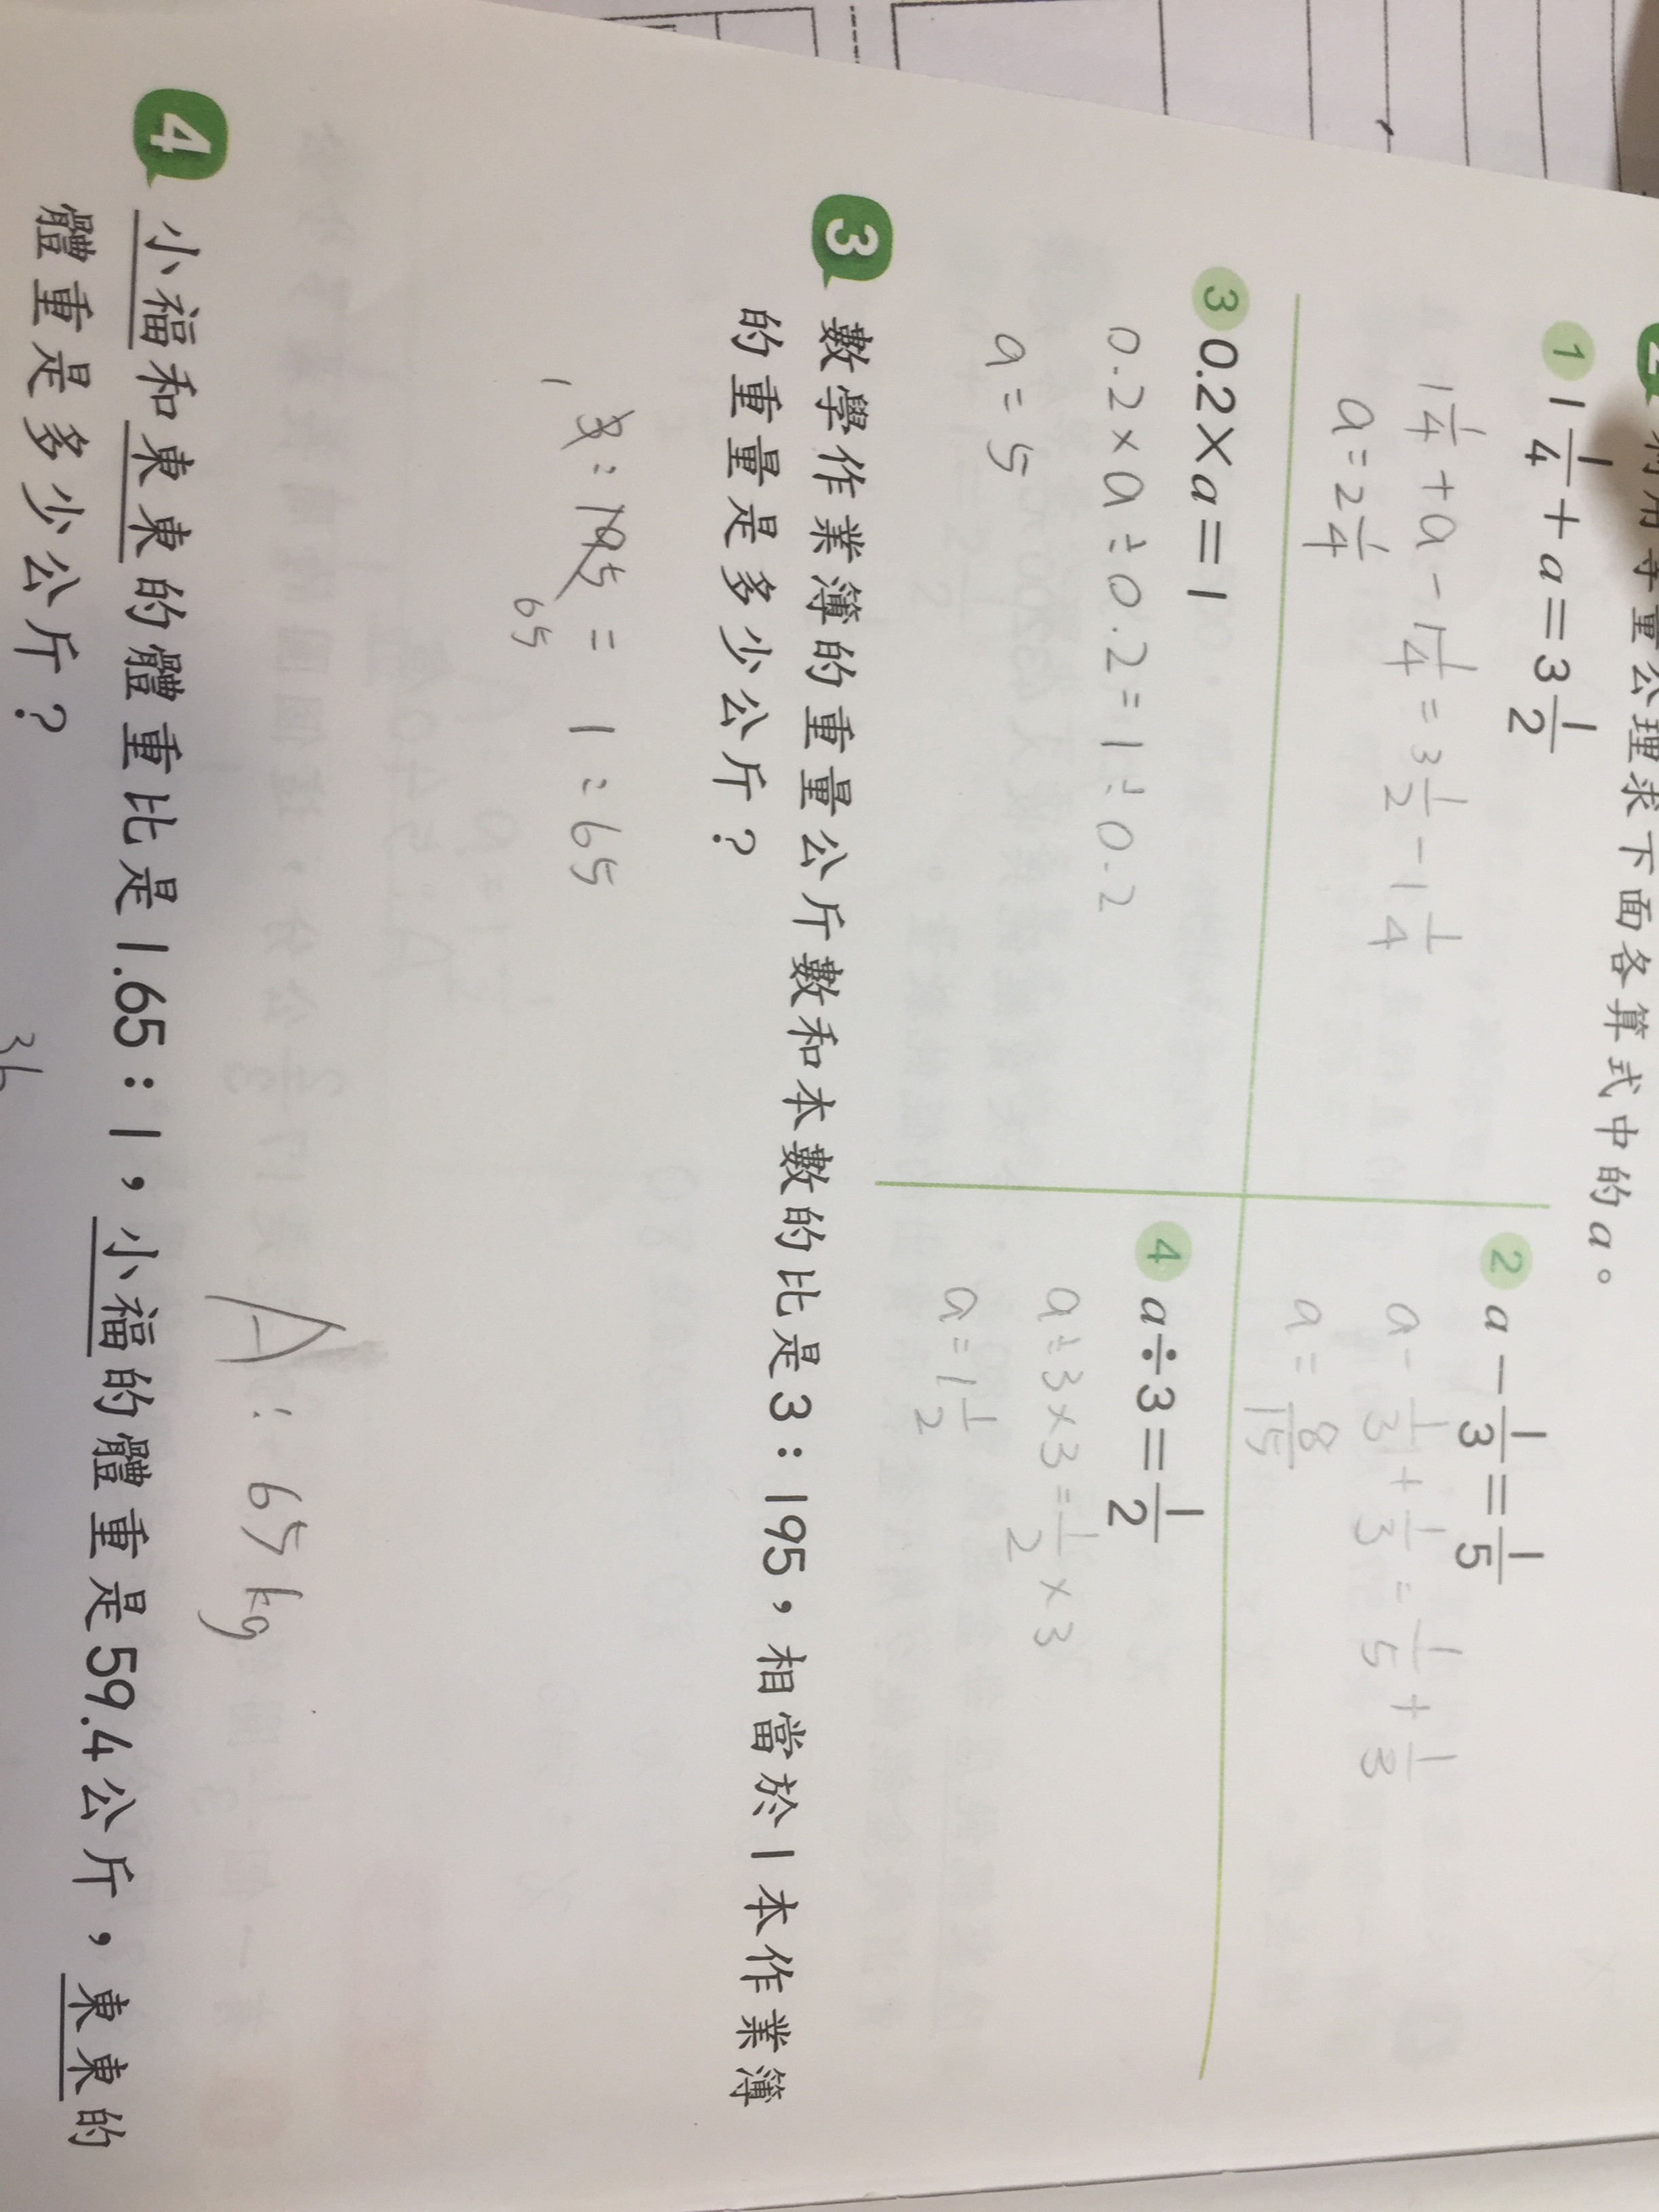 利用等量公理求下面各算式中的a。
1 1 1/4 + a = 3 1/2
1 1/4 + a - 1 1/4 = 3 1/2 - 1 1/4
a = 2 1/4
2 a - 1/3 = 1/5
a - 1/3 + 1/3 = 1/5 + 1/3
a = 8/15
3 0.2 × a = 1
0.2 × a ÷ 0.2 = 1 ÷ 0.2
a = 5
4 a ÷ 3 = 1/2
a ÷ 3 × 3 = 1/2 × 3
a = 1 1/2
3 數學作業簿的重量公斤數和本數的比是3:195,相當於1本作業簿
的重量是多少公斤?
1 3 : 195 65 = 1 : 65
A: 65 kg
4 小福和東東的體重比是1.65:1,小福的體重是59.4公斤,東東的
體重是多少公斤?
36